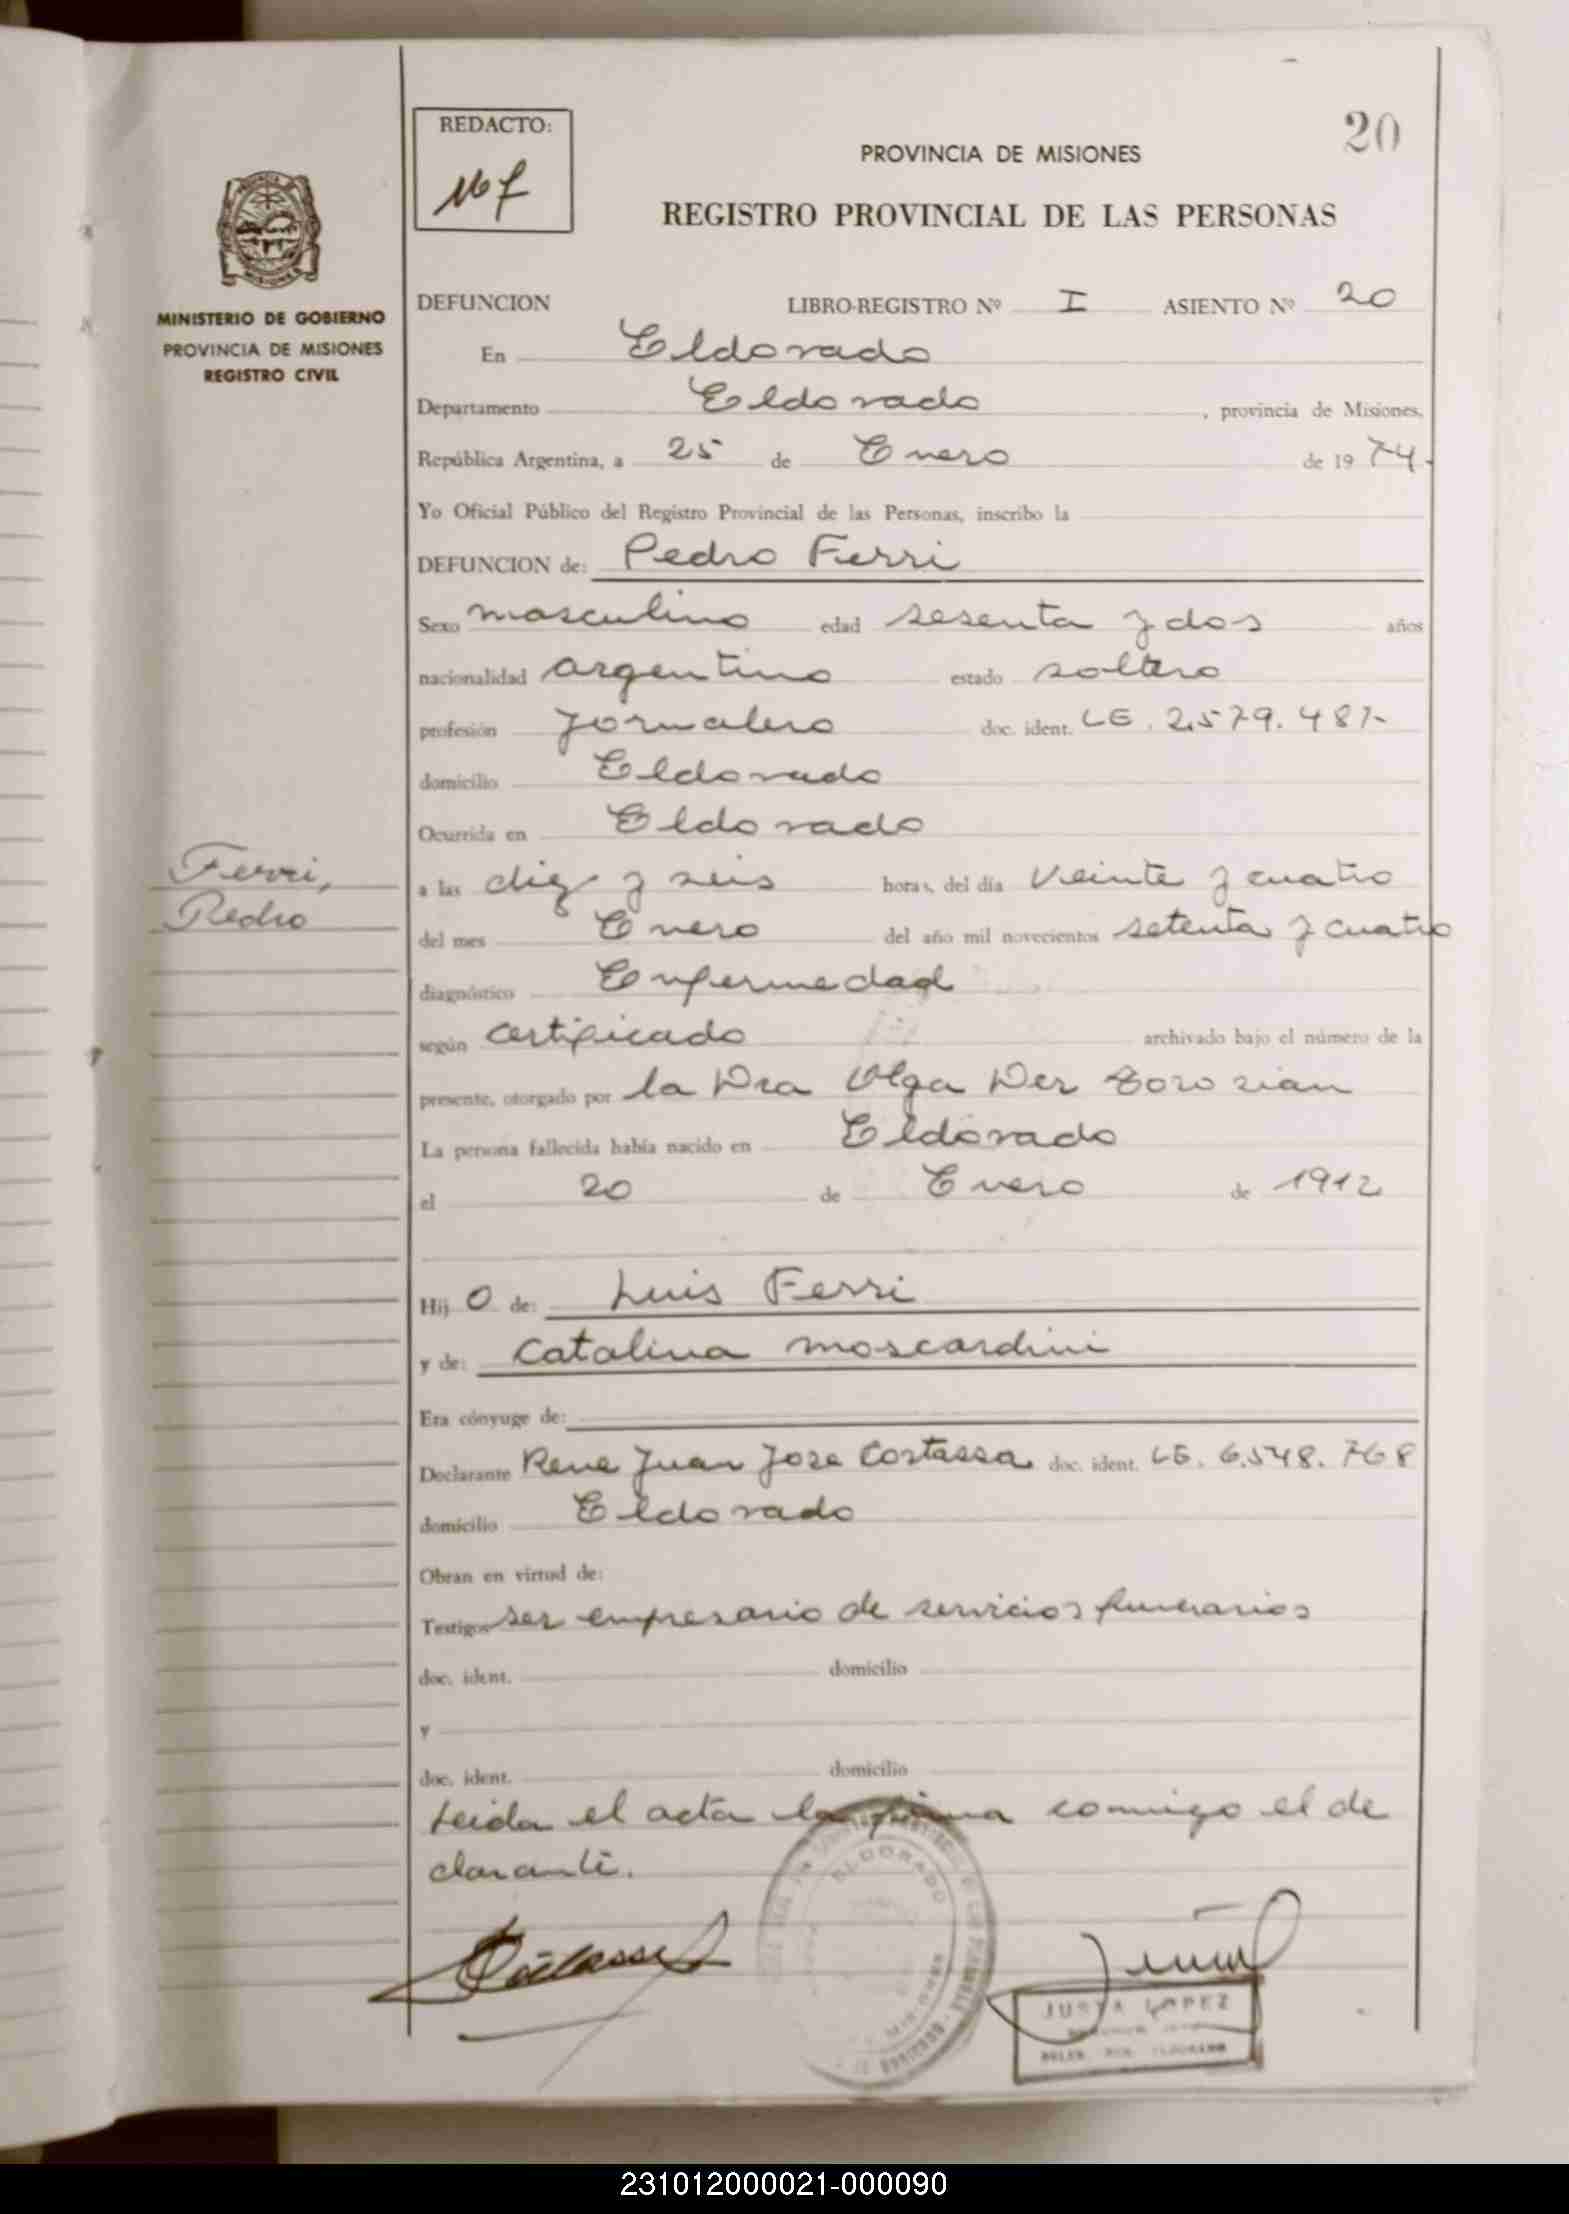 REDACTO:
20
PROVINCIA DE MISIONES
REGISTRO PROVINCIAL DE LAS PERSONAS
MINISTERIO DE GOBIERNO
PROVINCIA DE MISIONES
REGISTRO CIVIL
DEFUNCION LIBRO-REGISTRO Nº I ASIENTO Nº 20
En Eldorado
Departamento Eldorado, provincia de Misiones,
República Argentina, a 25 de Enero de 1974.
Yo Oficial Público del Registro Provincial de las Personas, inscribo la
DEFUNCION de: Pedro Ferri
Sexo masculino edad sesenta y dos años
nacionalidad argentino estado soltero
profesión Jornalero doc. ident. LE. 2.579.487-
domicilio Eldorado
Ocurrida en Eldorado
Ferri,
Pedro
a las diez y seis horas, del día veinte y cuatro
del mes Enero del año mil novecientos setenta y cuatro
diagnóstico Enfermedad
según certificado archivado bajo el número de la
presente, otorgado por la Dra Olga Der Torosian
La persona fallecida había nacido en Eldorado
el 20 de Enero de 1912
Hijo de: Luis Ferri
y de: Catalina moscardini
Era cónyuge de:
Declarante Rene Juan Jose Costassa doc. ident. LE. 6.548.768
domicilio Eldorado
Obran en virtud de:
Testigos ser empresario de servicios funerarios
doc. ident. domicilio
y
doc. ident. domicilio
Leida el acta la firma conmigo el de
clarante.
ELDORADO
JUSTA LOPEZ
231012000021-000090